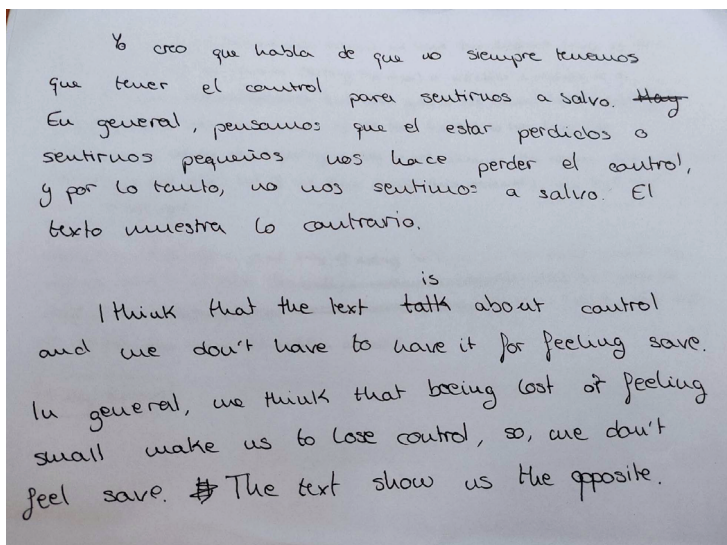 Yo creo que habla de que no siempre tenemos
que tener el control para sentirnos a salvo. Hay
En general, pensamos que el estar perdidos o
sentirnos pequeños nos hace perder el control,
y por lo tanto, no nos sentimos a salvo. El
texto muestra lo contrario.
is
I think that the text talk about control
and we don't have to have it for feeling save.
In general, we think that beeing lost or feeling
small make us to lose control, so, we don't
feel save. The text show us the opposite.